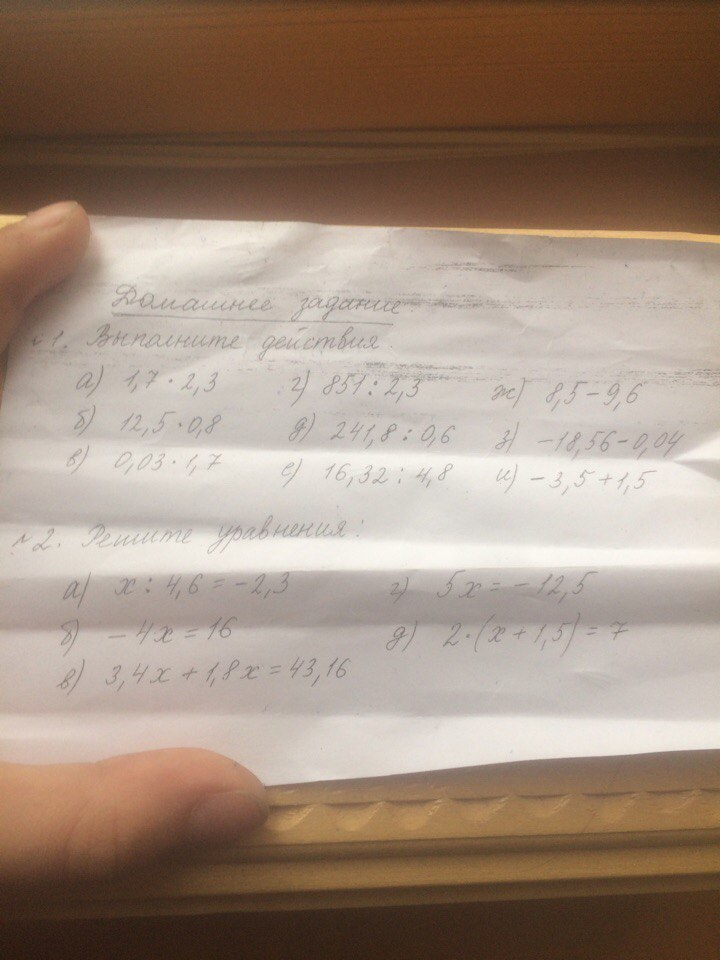 Домашнее задание.
№1. Выполните действия.
а) 1,7 · 2,3 г) 851 : 2,3 ж) 8,5 - 9,6
б) 12,5 · 0,8 д) 241,8 : 0,6 з) -18,56 - 0,04
в) 0,03 · 1,7 е) 16,32 : 4,8 и) -3,5 + 1,5
№2. Решите уравнения:
а) x : 4,6 = -2,3 г) 5x = -12,5
б) -4x = 16 д) 2 · (x + 1,5) = 7
в) 3,4x + 1,8x = 43,16